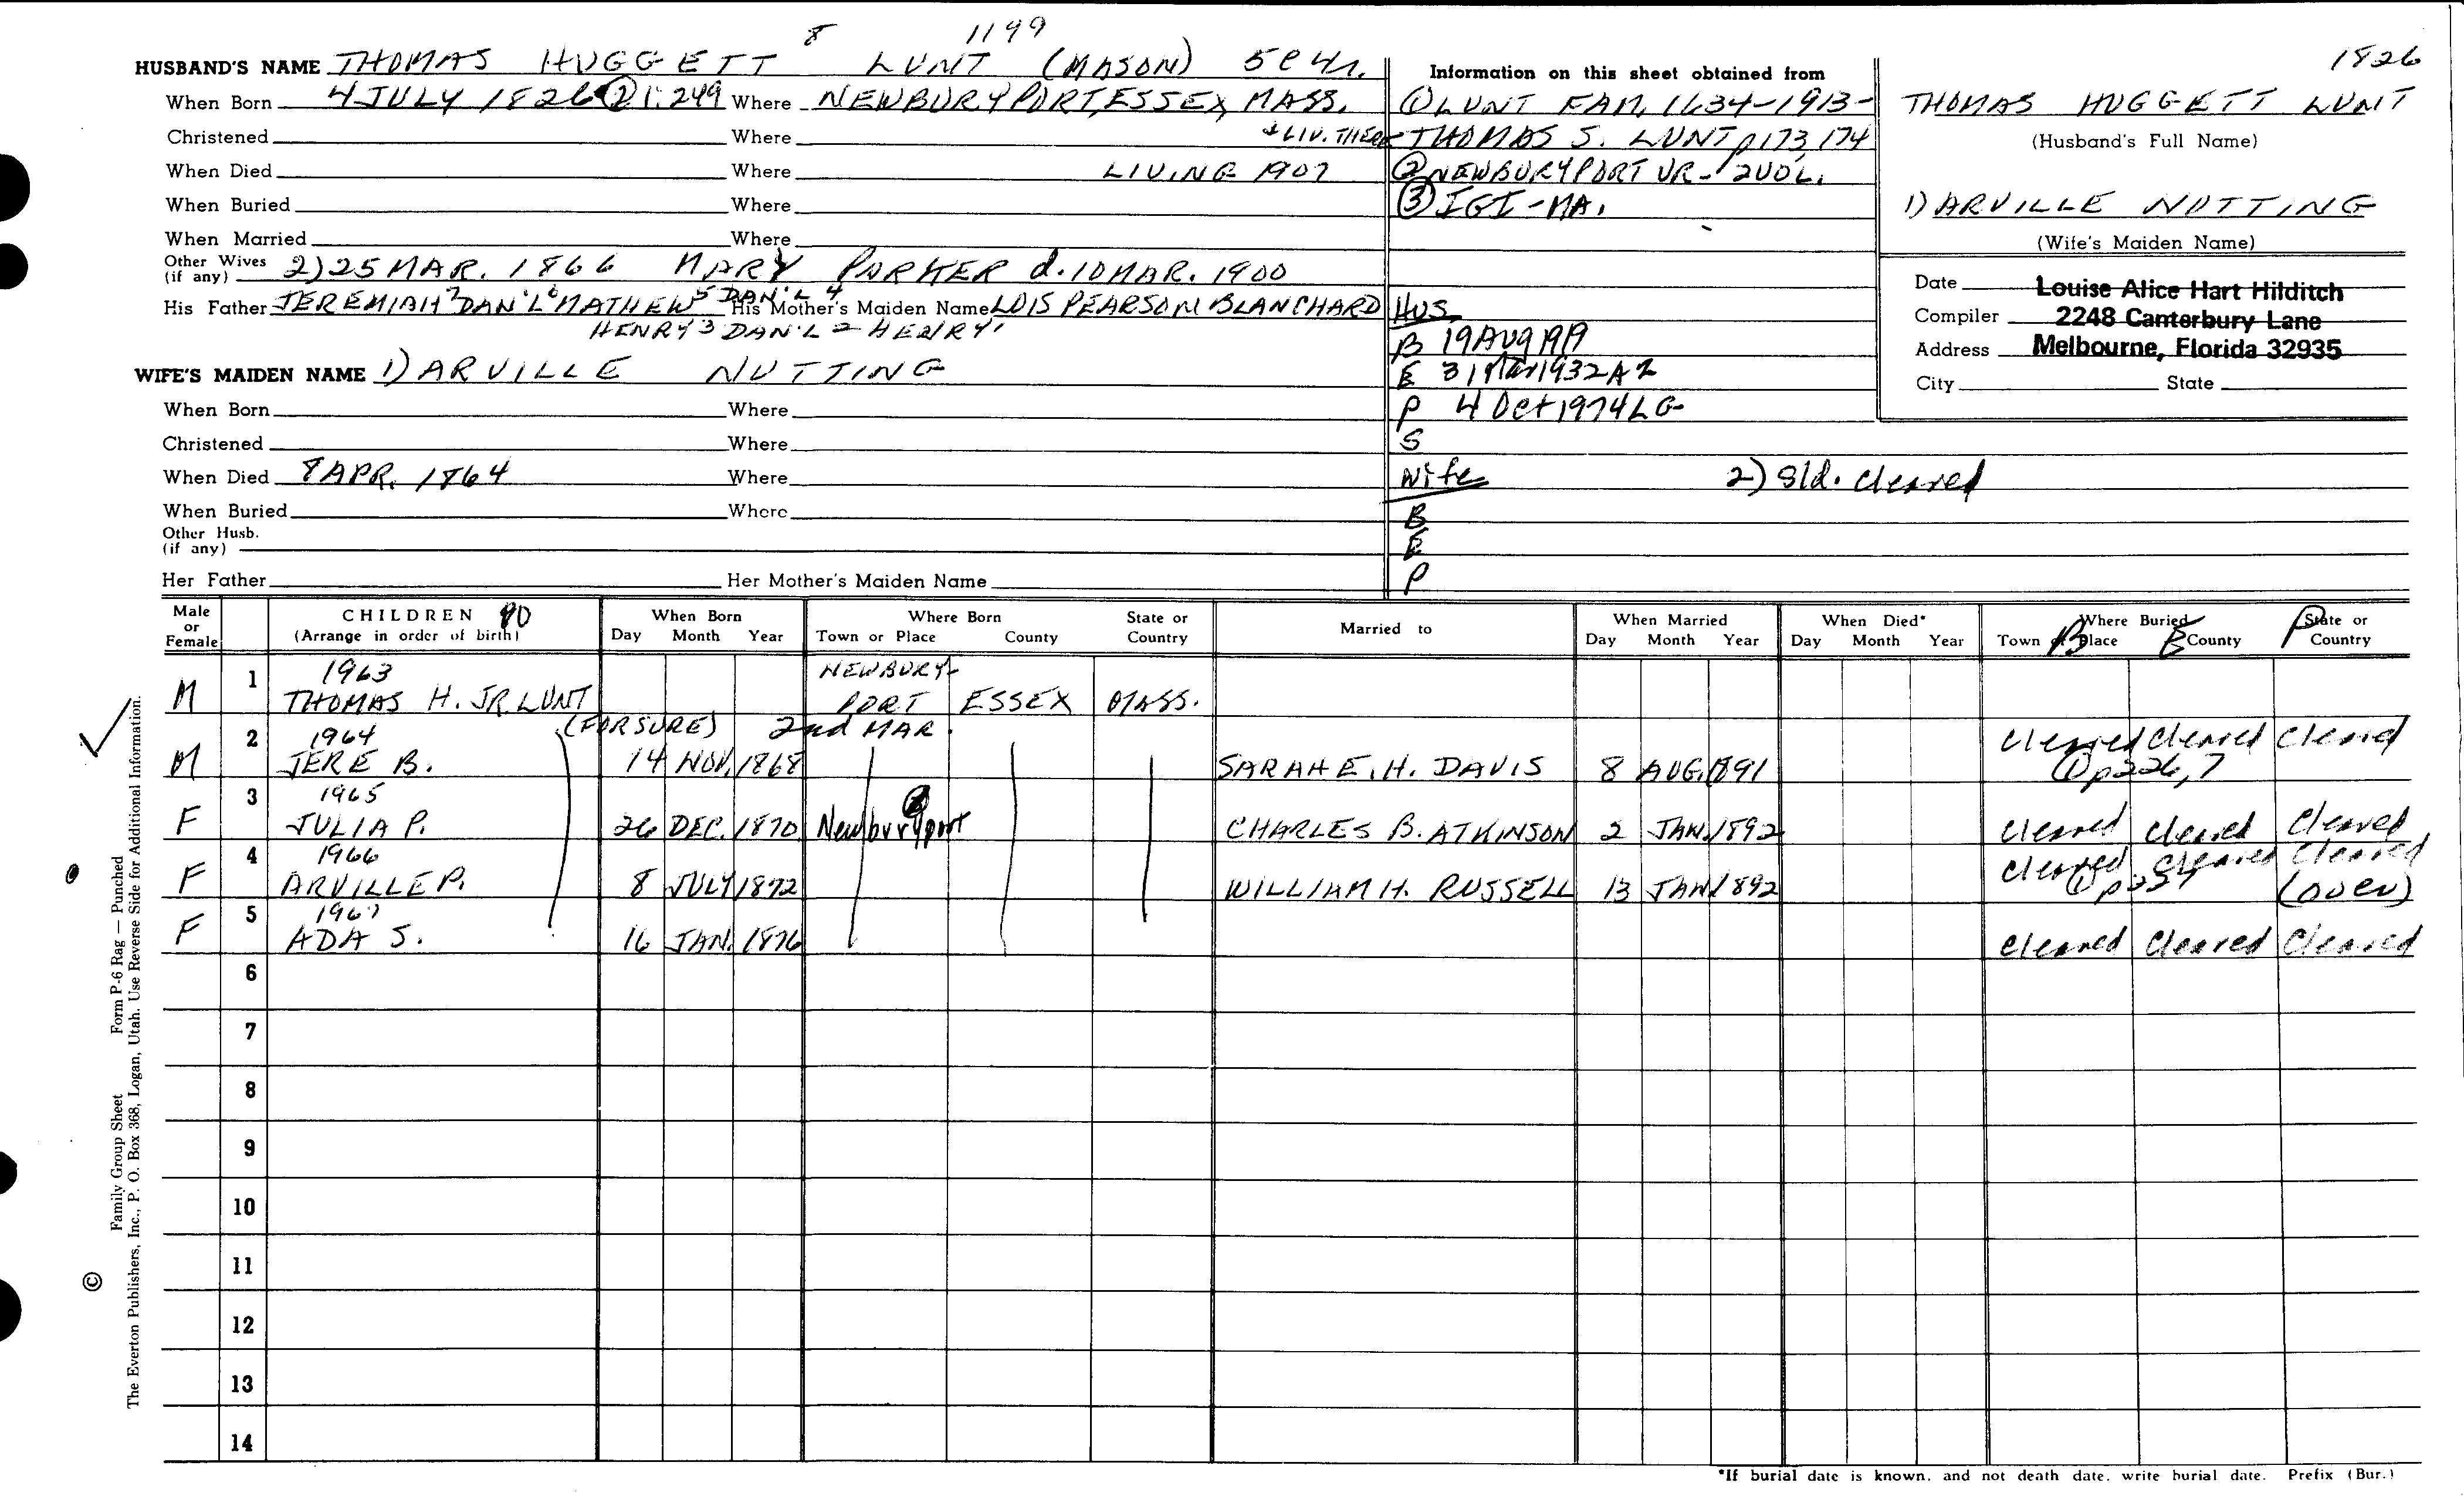 8 1199
HUSBAND'S NAME THOMAS HUGGETT LUNT (MASON) 5 ch. 1826
Information on this sheet obtained from
When Born 4 JULY 1826 ② 1:249 Where NEWBURYPORT, ESSEX MASS. ① LUNT FAM. 1634-1913- THOMAS HUGGETT LUNT
Christened Where & LIV. THERE THOMAS S. LUNT p173,174 (Husband's Full Name)
When Died Where LIVING 1907 ② NEWBURYPORT VR - 2 VOL.
When Buried Where ③ IGI - MA. 1) ARVILLE NUTTING
When Married Where (Wife's Maiden Name)
Other Wives (if any) 2) 25 MAR. 1866 MARY PARKER d. 10 MAR. 1900
His Father JEREMIAH 7 DAN'L 6 MATHEW 5 DAN'L 4 His Mother's Maiden Name LOIS PEARSON BLANCHARD Hus
HENRY 3 DAN'L 2 HENRY 1
Date Louise Alice Hart Hilditch
Compiler 2248 Canterbury Lane
Address Melbourne, Florida 32935
City State
B 19 Aug 1919
WIFE'S MAIDEN NAME 1) ARVILLE NUTTING E 31 Mar 1932 AZ
When Born Where P 4 Oct 1974 LG
Christened Where S
When Died 8 APR. 1864 Where Wife 2) Sld. cleared
When Buried Where B
Other Husb. (if any) E
Her Father Her Mother's Maiden Name P
Male or Female CHILDREN (Arrange in order of birth) When Born Day Month Year Where Born Town or Place County State or Country Married to When Married Day Month Year When Died* Day Month Year Where Buried Town or Place County State or Country
B E P
1963 NEWBURY-
M 1 THOMAS H. JR LUNT PORT ESSEX MASS.
(FOR SURE) 2nd MAR.
2 1964 cleared cleared cleared
M JERE B. 14 NOV. 1868 SARAH E. H. DAVIS 8 AUG. 1891 ① p226,7
3 1965
F JULIA P. 26 DEC. 1870 Newburyport CHARLES B. ATKINSON 2 JAN. 1892 cleared cleared cleared
4 1966 cleared cleared cleared
F ARVILLE P. 8 JULY 1872 WILLIAM H. RUSSELL 13 JAN 1892 ① p227 (over)
5 1967
F ADA S. 16 JAN. 1876 cleared cleared cleared
6
7
8
9
10
11
12
13
14
*If burial date is known, and not death date, write burial date. Prefix (Bur.)
© Family Group Sheet Form P-6 Rag — Punched
The Everton Publishers, Inc., P. O. Box 368, Logan, Utah. Use Reverse Side for Additional Information.